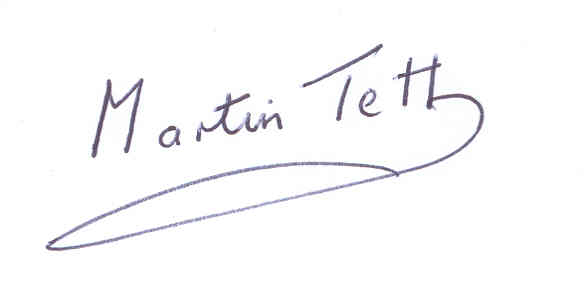 Martin Tett